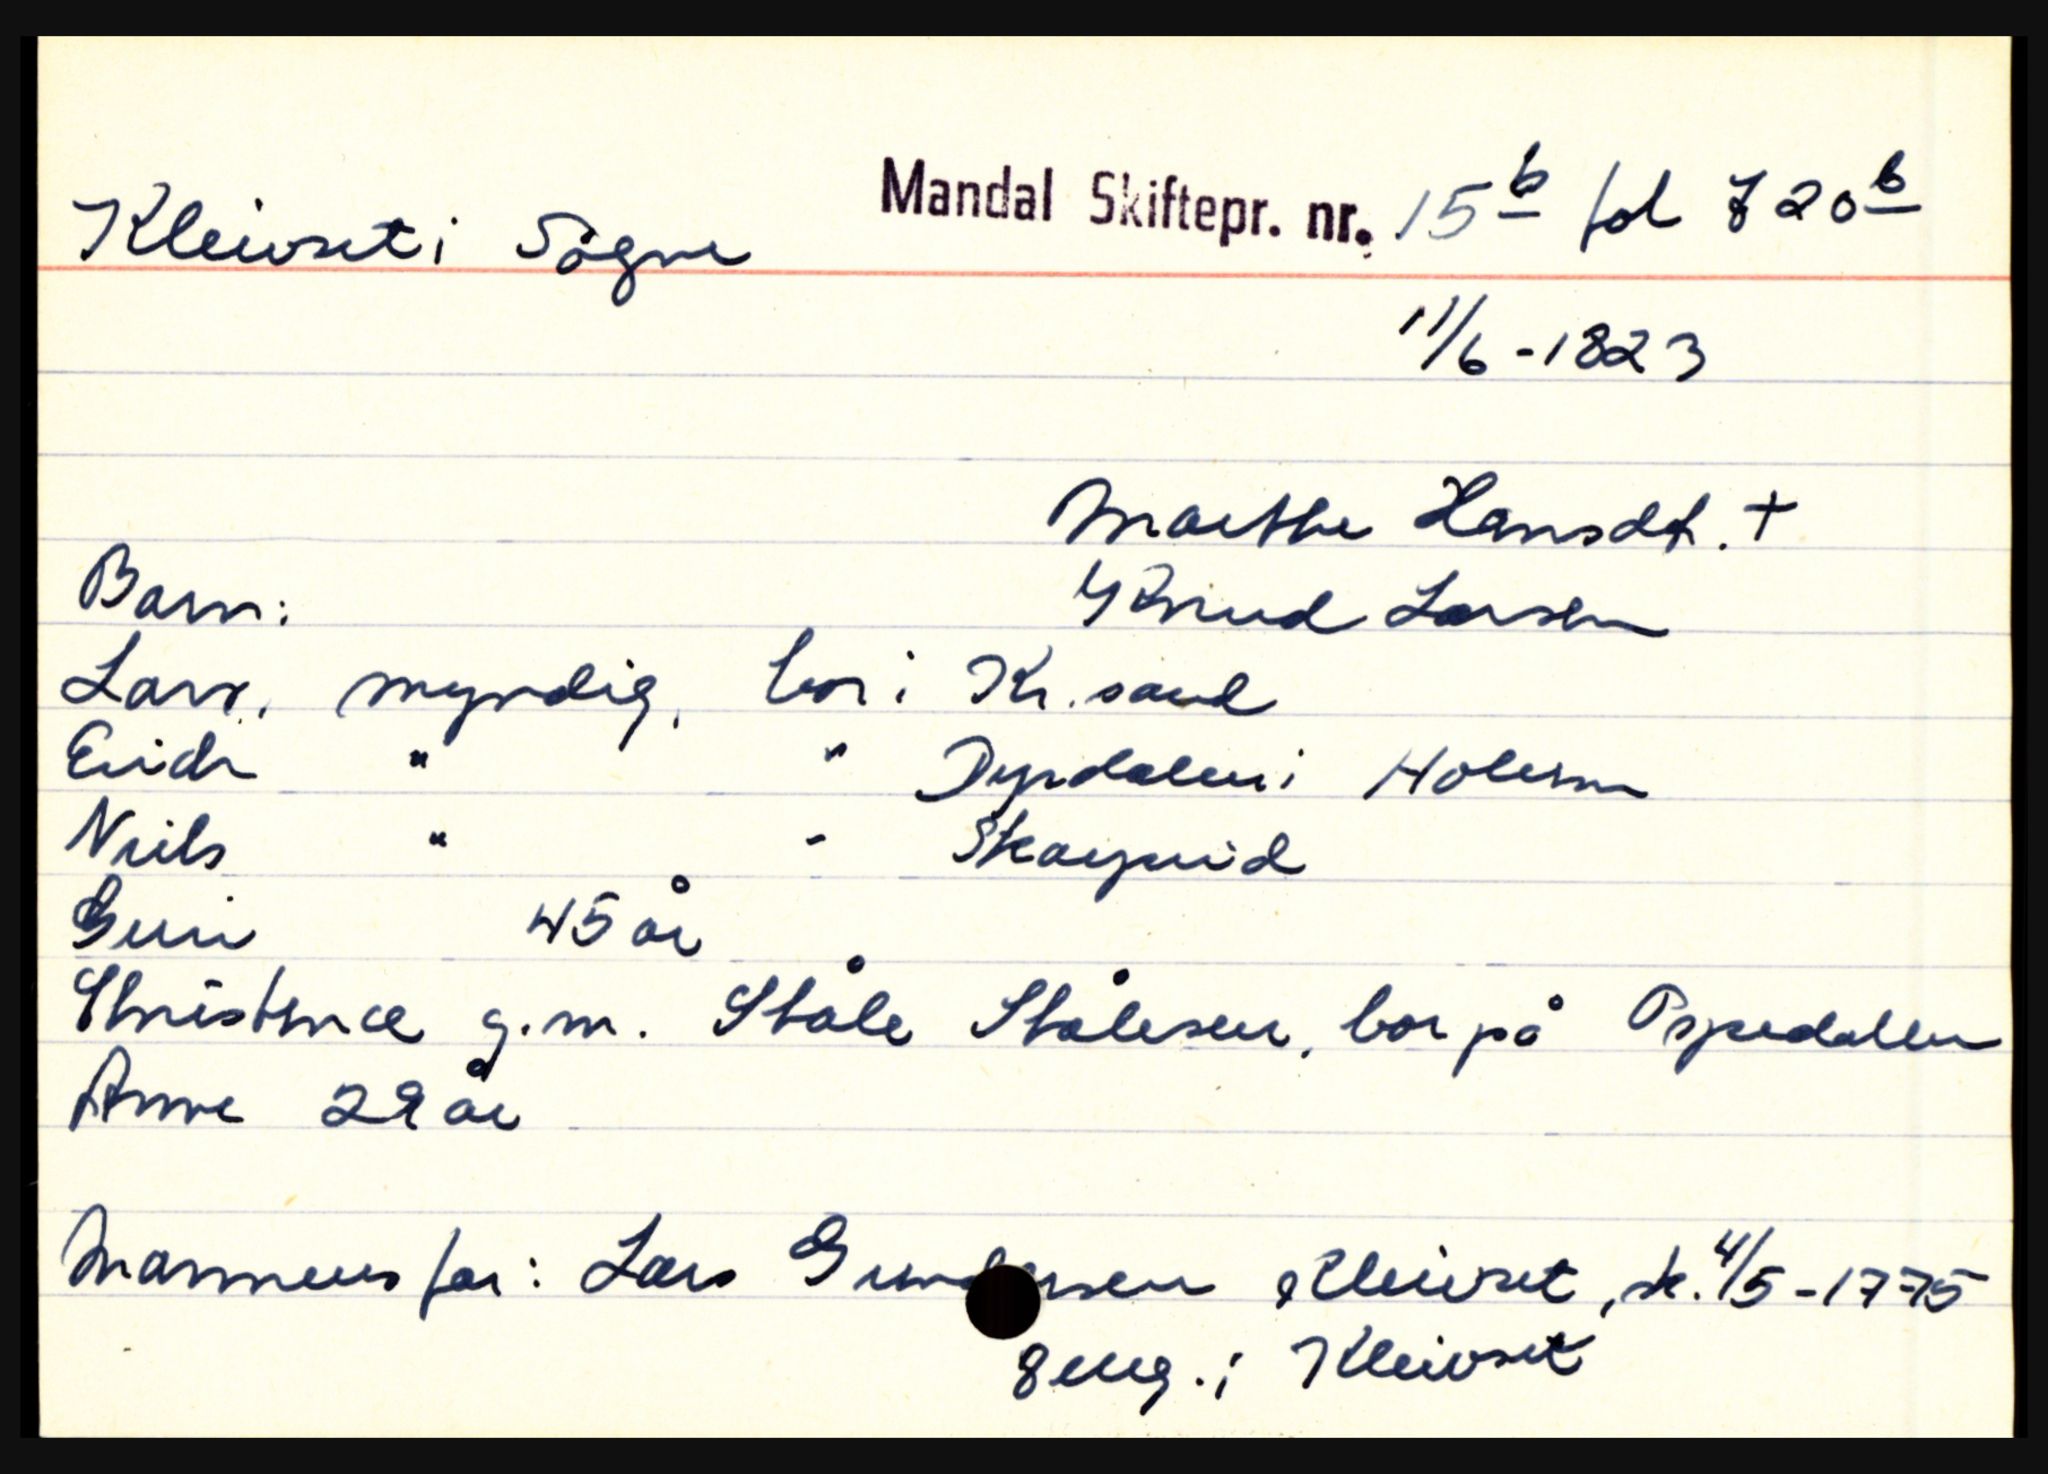 Kleivset i Søgne
Mandal Skiftepr. nr. 15b fol 720b
11/6 - 1823
Marthe Hansdt. +
Barn:
Knud Larsen
Lars, myndig, bor i Kr.sand
Erich " " Dypdalen i Holum
Niils " - Skarpeid
Guri 45 år
Christence g.m. Ståle Stålesen, bor på Ospedallen
Anne 29 år
Mannens far: Lars Gundersen Kleivset, sk. 4/5 - 1775
8 eng. i Kleivset